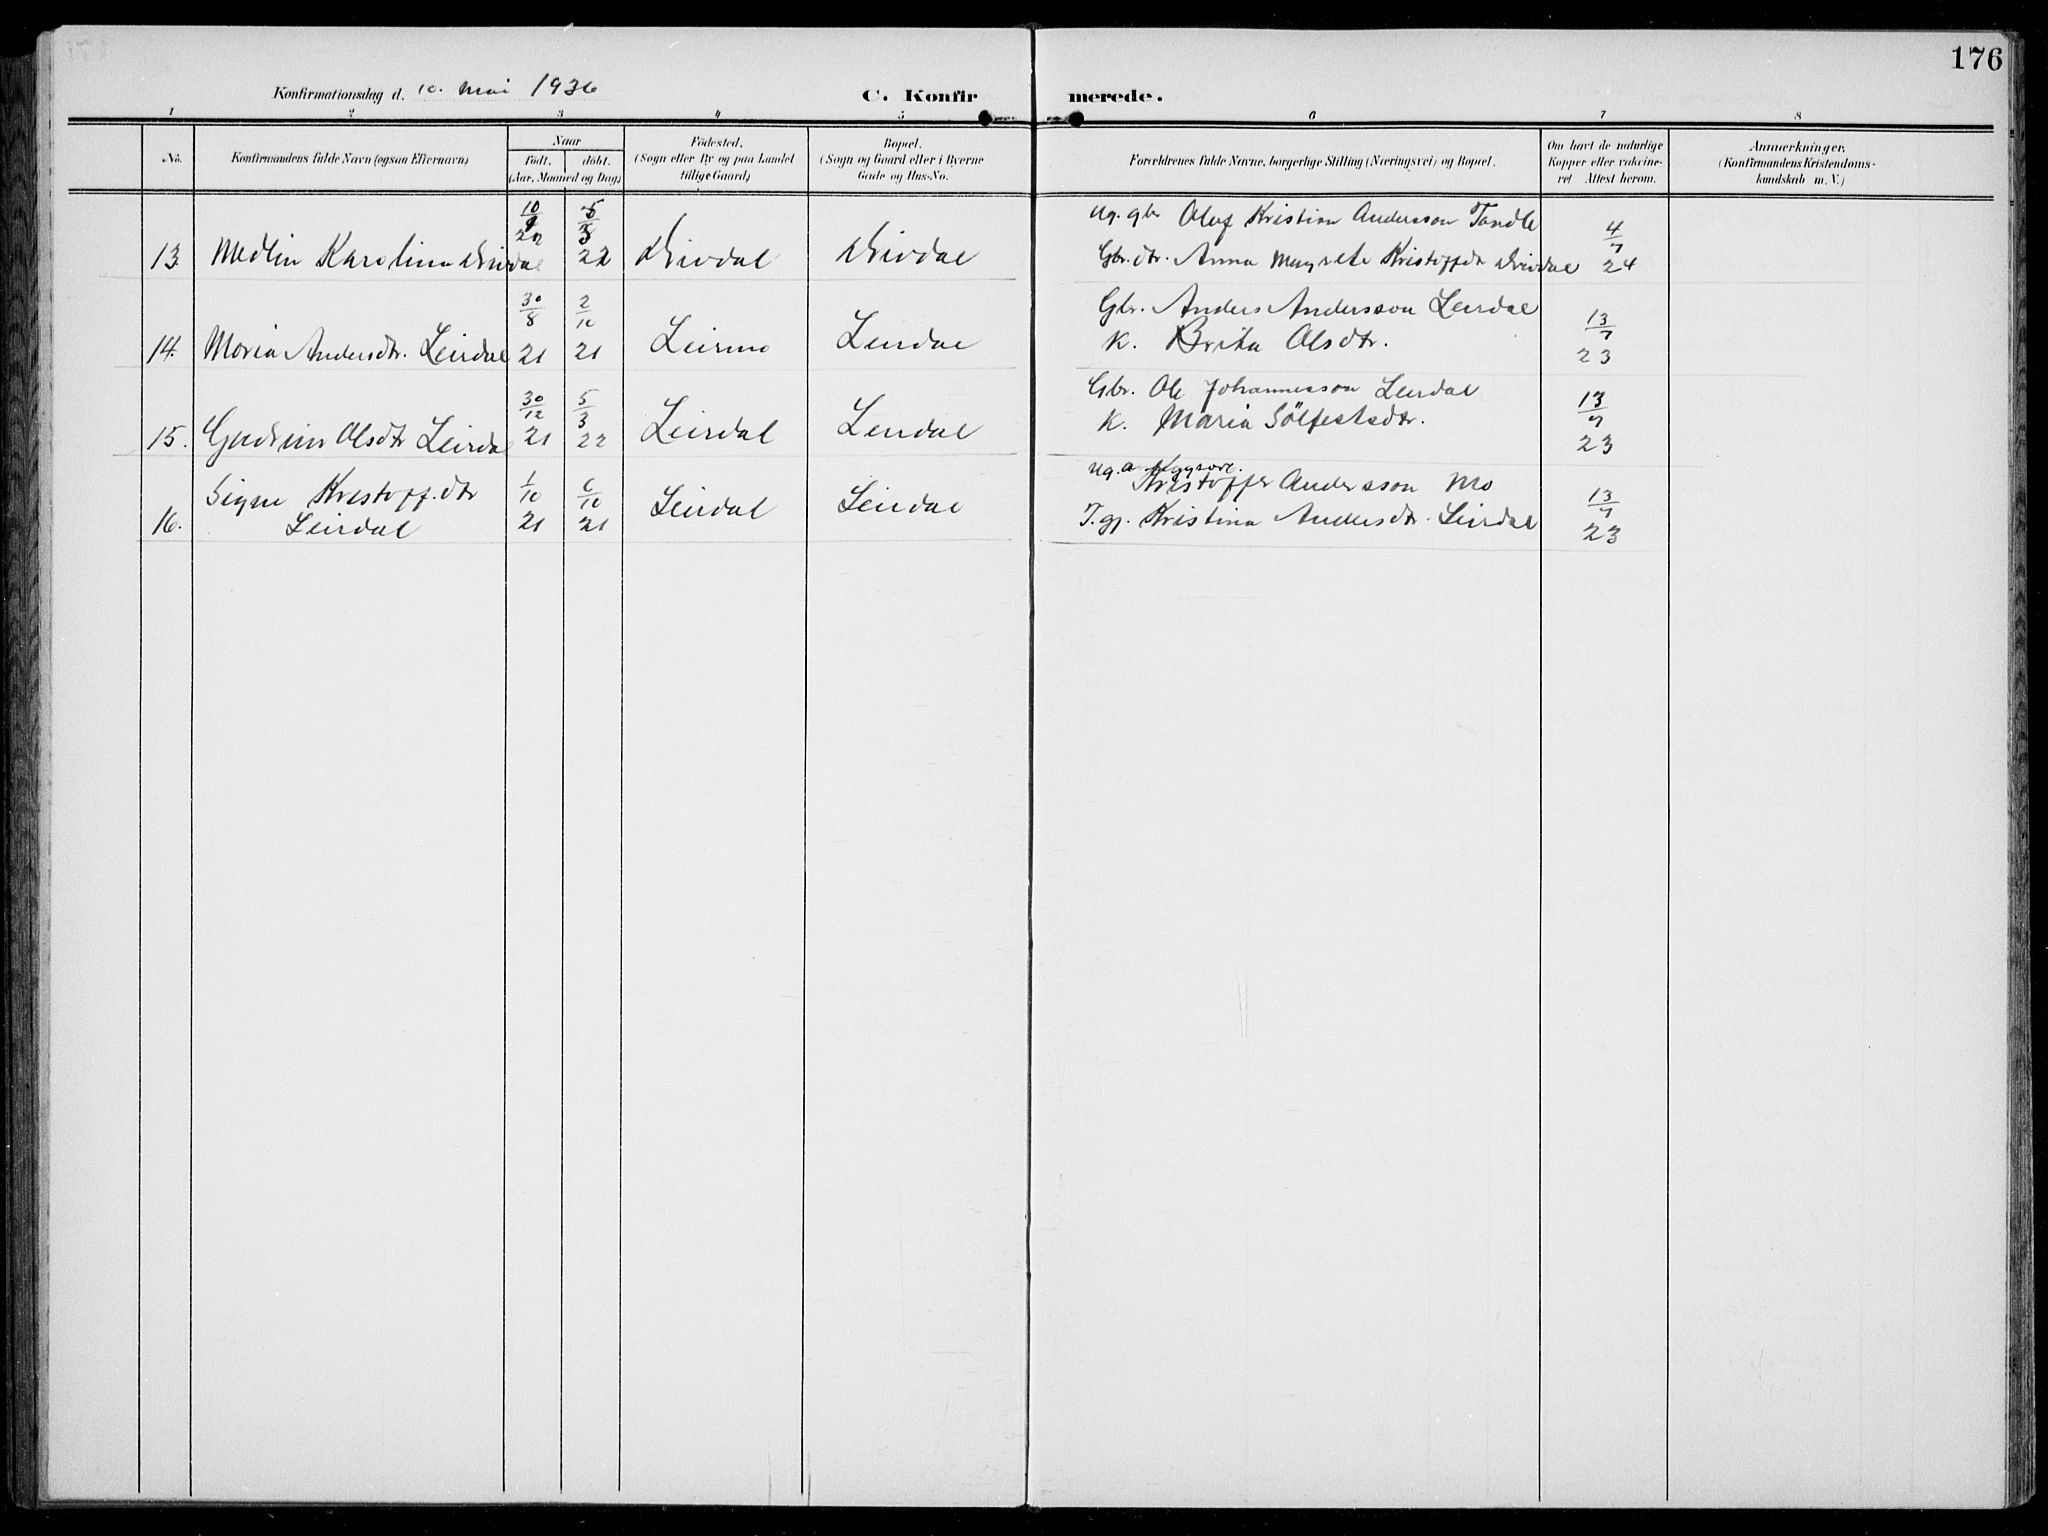 176
Konfirmationsdag d. 10. mai 1936
C. Konfirmerede.
1 2 3 4 5 6 7 8
No.
Konfirmandens fulde Navn (ogsaa Efternavn)
Naar
født. døbt.
(Aar, Maaned og Dag)
Fødested.
(Sogn eller By og paa Landet
tillige Gaard)
Bopæl.
(Sogn og Gaard eller i Byerne
Gade og Hus-No.
Forældrenes fulde Navne, borgerlige Stilling (Næringsvei) og Bopæl.
Om havt de naturlige
Kopper eller vakcine-
ret Attest herom.
Anmærkninger.
(Konfirmandens Kristendoms-
kundskab m. V.)
13. Medlin Karolina Drivdal 22 5/3 22 Drivdal Drivdal
Ug. gbr Oluf Kristian Andersson Tandle
Gbr.dtr. Anna Margrete Kristoffdtr Drivdal
4/7 24
14. Maria Andersdtr. Leirdal 30/8 21 2/10 21 Leirmo Leirdal
Gbr. Anders Andersson Leirdal
K. Brita Olsdtr.
13/7 23
15. Gudrun Olsdtr Leirdal 30/12 21 5/3 22 Leirdal Leirdal
Gbr. Ole Johannesson Leirdal
K. Maria Sölfestsdtr.
13/7 23
16. Signe Kristoff.dtr
Leirdal
1/10 21 6/10 21 Leirdal Leirdal
Ug. a
Kristoffer Andersson Mo
T.gj. Kristina Andersdtr. Leirdal
13/7 23